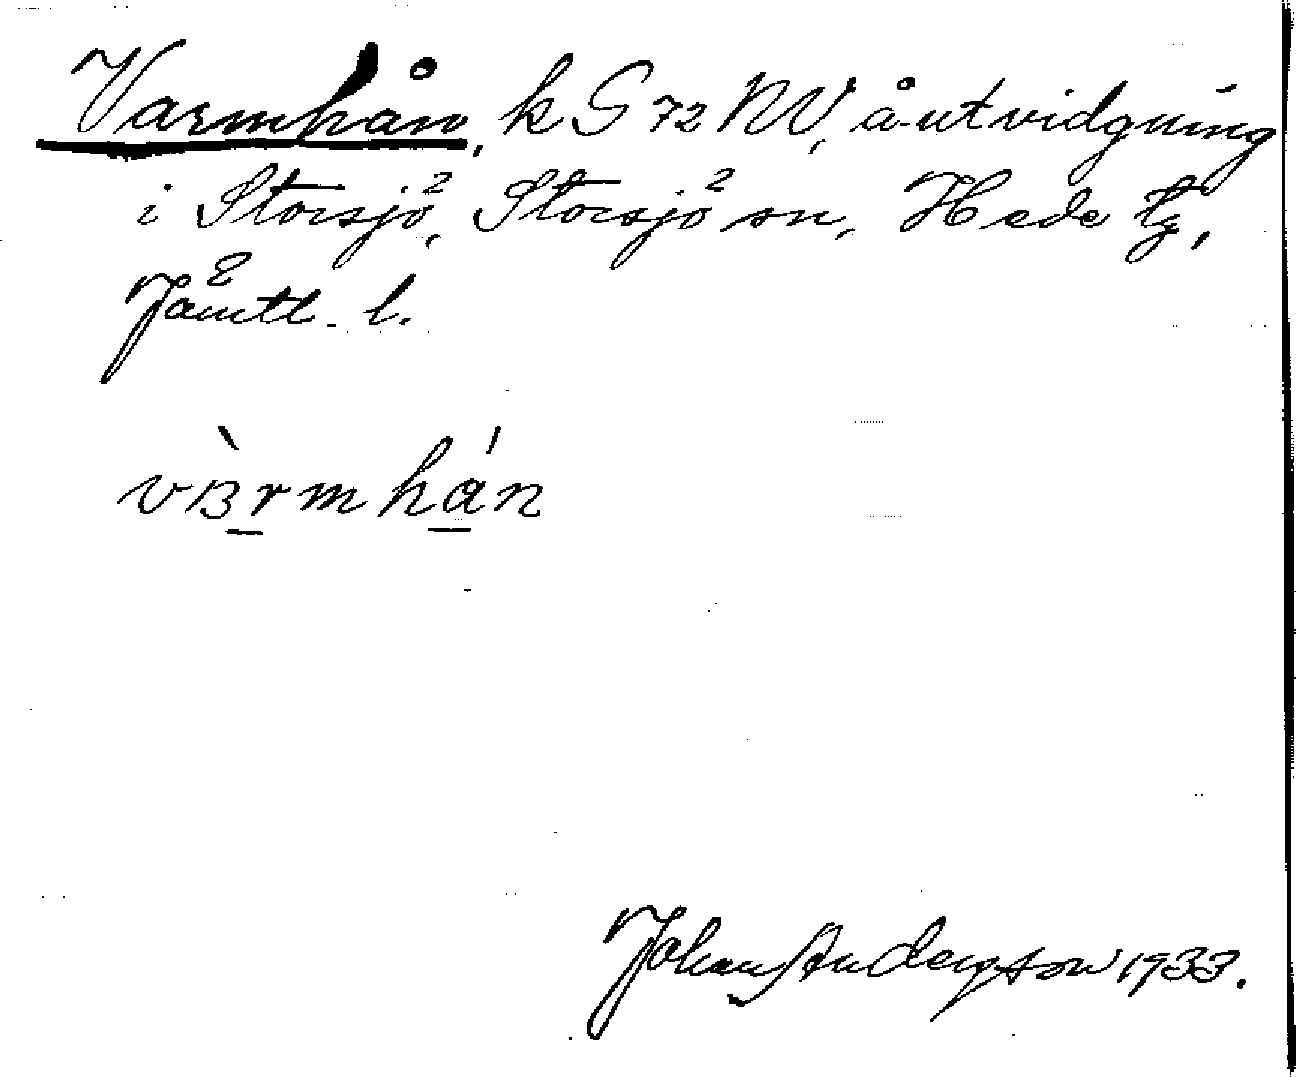 Varmhån, k G 72 NV, å-utvidgning
i Storsjö, Storsjö sn, Hede tg,
Jämtl. l.
vàrmhán
Johan Andersson 1933.